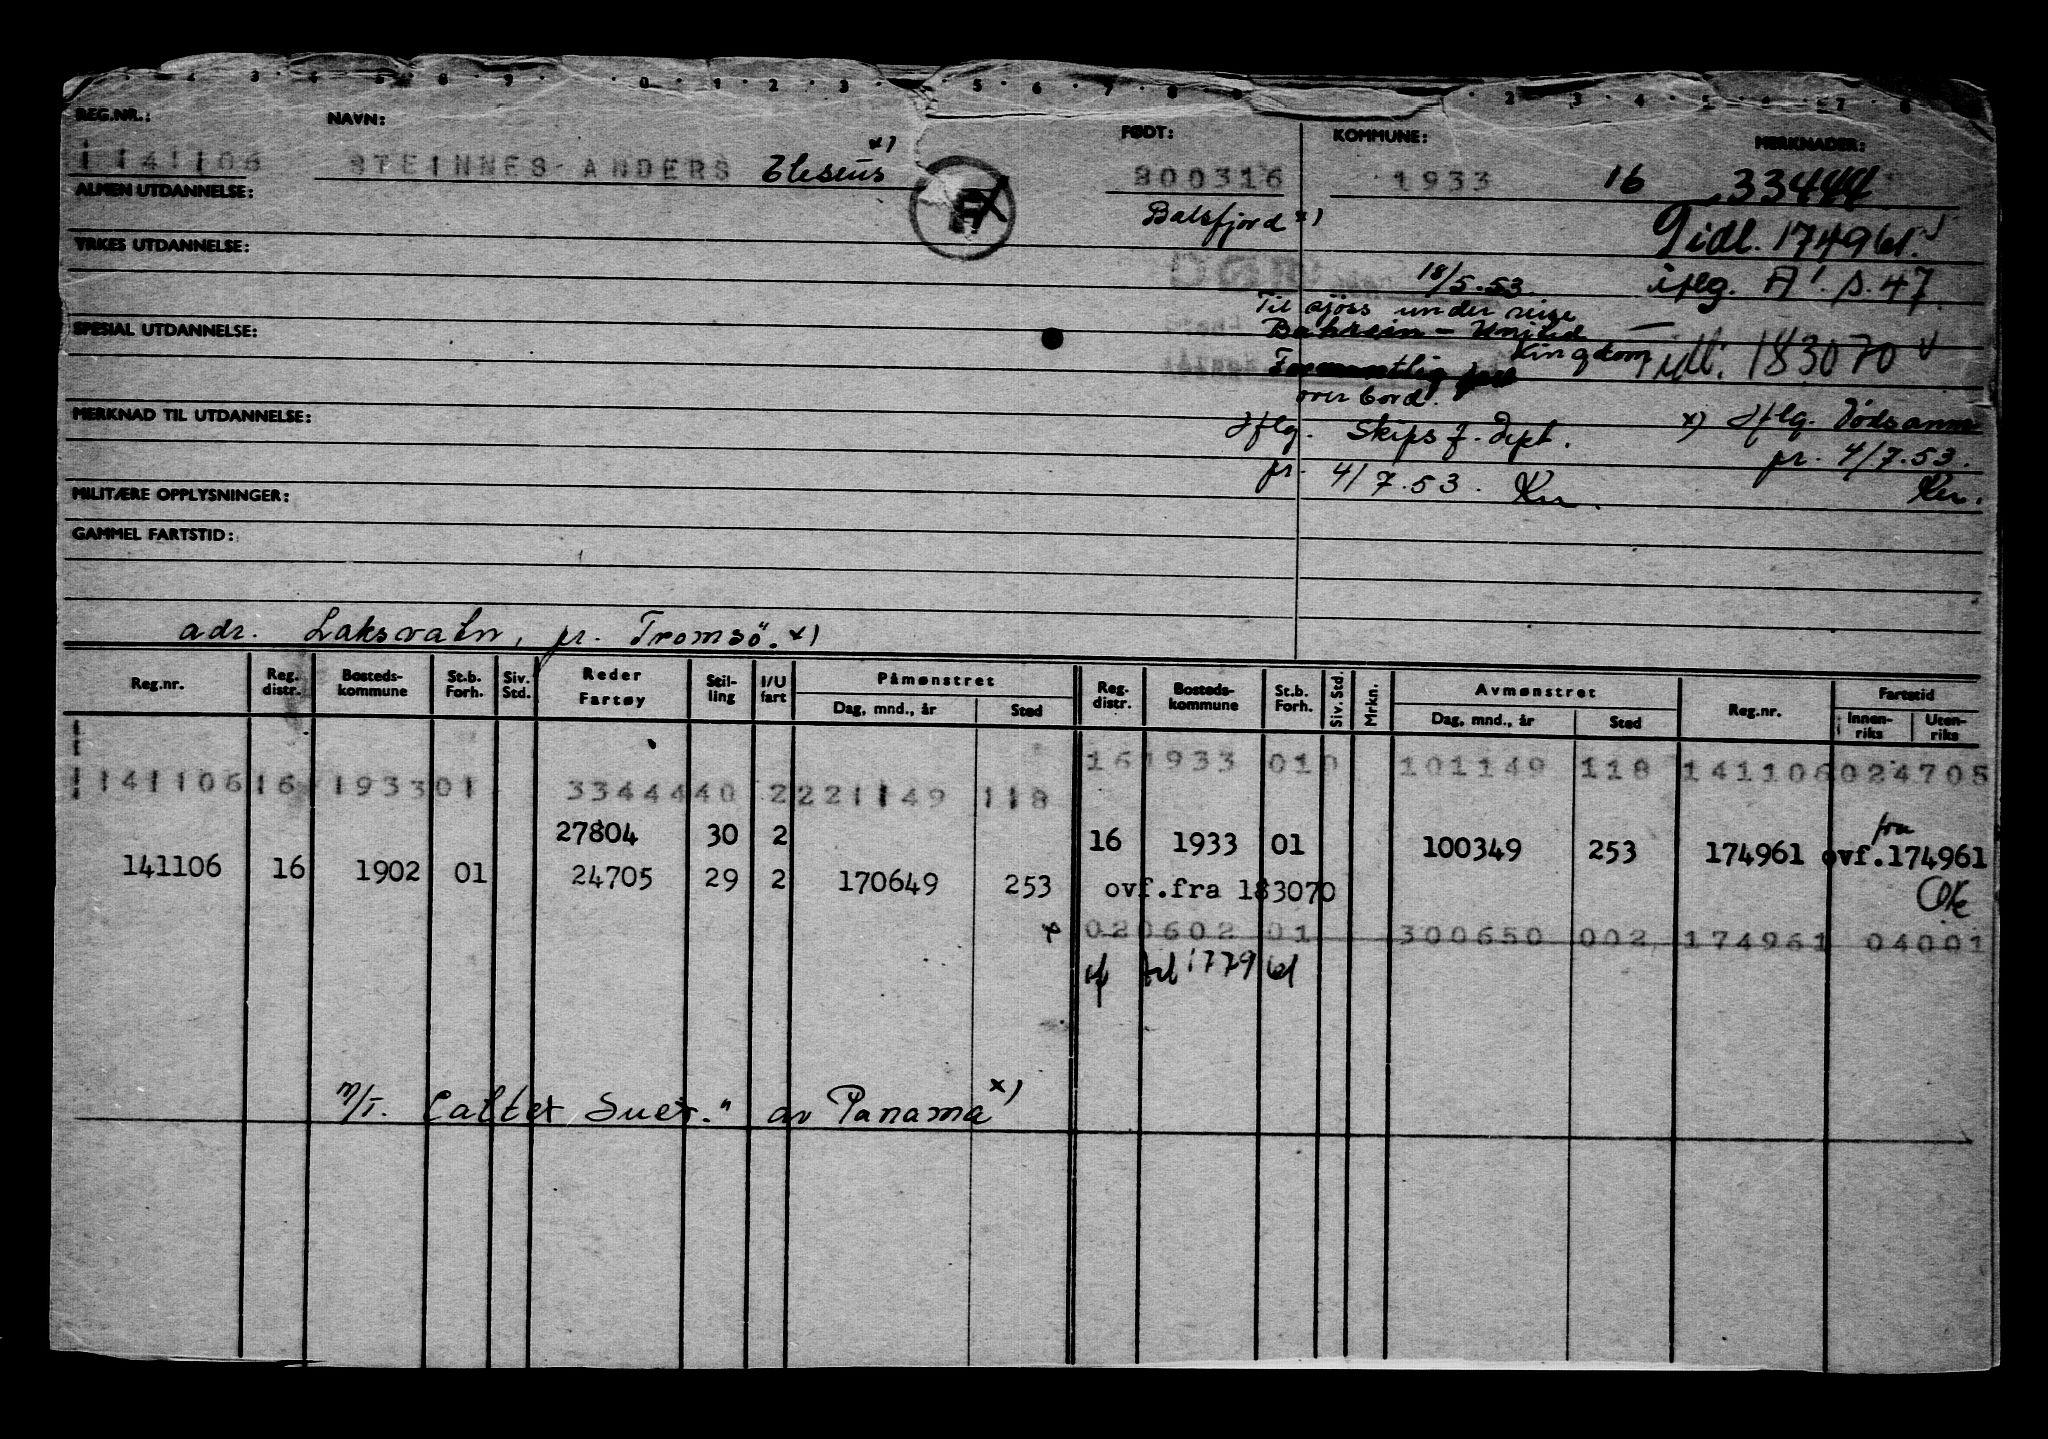 REG.NR.: NAVN: FØDT: KOMMUNE: MERKNADER:
141106 STEINNES ANDERS Eleseus x) 300316 1933 16 33444
ALMEN UTDANNELSE: Balsfjord x) Tidl. 174961.
YRKES UTDANNELSE: 18/5.53. iflg. A'. s. 47.
Til sjöss under reise
SPESIAL UTDANNELSE: Bahrein - United Kingdom Tidl. 183070
over bord.
MERKNAD TIL UTDANNELSE: Iflg. Skips f. dept. x) Iflg. Dødsanm.
pr. 4/7.53. Kw. pr. 4/7.53.
MILITÆRE OPPLYSNINGER: Kw.
GAMMEL FARTSTID:
adr. Laksvatn, pr. Tromsö. x)
Reg.nr. Reg. distr. Bosteds-kommune St.b. Forh. Siv. Std. Reder Fartøy Stil-ling I/U fart Påmønstret Dag, mnd., år Sted Reg. distr. Bosteds-kommune St.b. Forh. Siv. Std. Mrkn. Avmønstret Dag, mnd., år Sted Reg.nr. Fartstid Innen-riks Uten-riks
16 1933 010 101149 118 141106 024705
141106 16 1933 01 33444 40 2 221149 118
27804 30 2 16 1933 01 100349 253 174961 ovf. fra 174961
141106 16 1902 01 24705 29 2 170649 253 ovf.fra 183070
020602 01 300650 002 174961 04001
m/T. Caltex Suez." av Panama x)